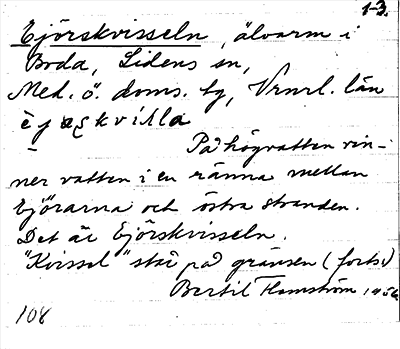 1-3.
Ejörskvisseln, älvarm i
Boda, Lidens sn,
Med. ö. doms. hg, Vrnrl. län
På högvatten rin-
ner vatten i en ränna mellan
Ejörarna och östra stranden.
Det är Ejörskvisseln.
"Kvissel" står på gränsen (forts.)
Bertil Flemström 1956
108